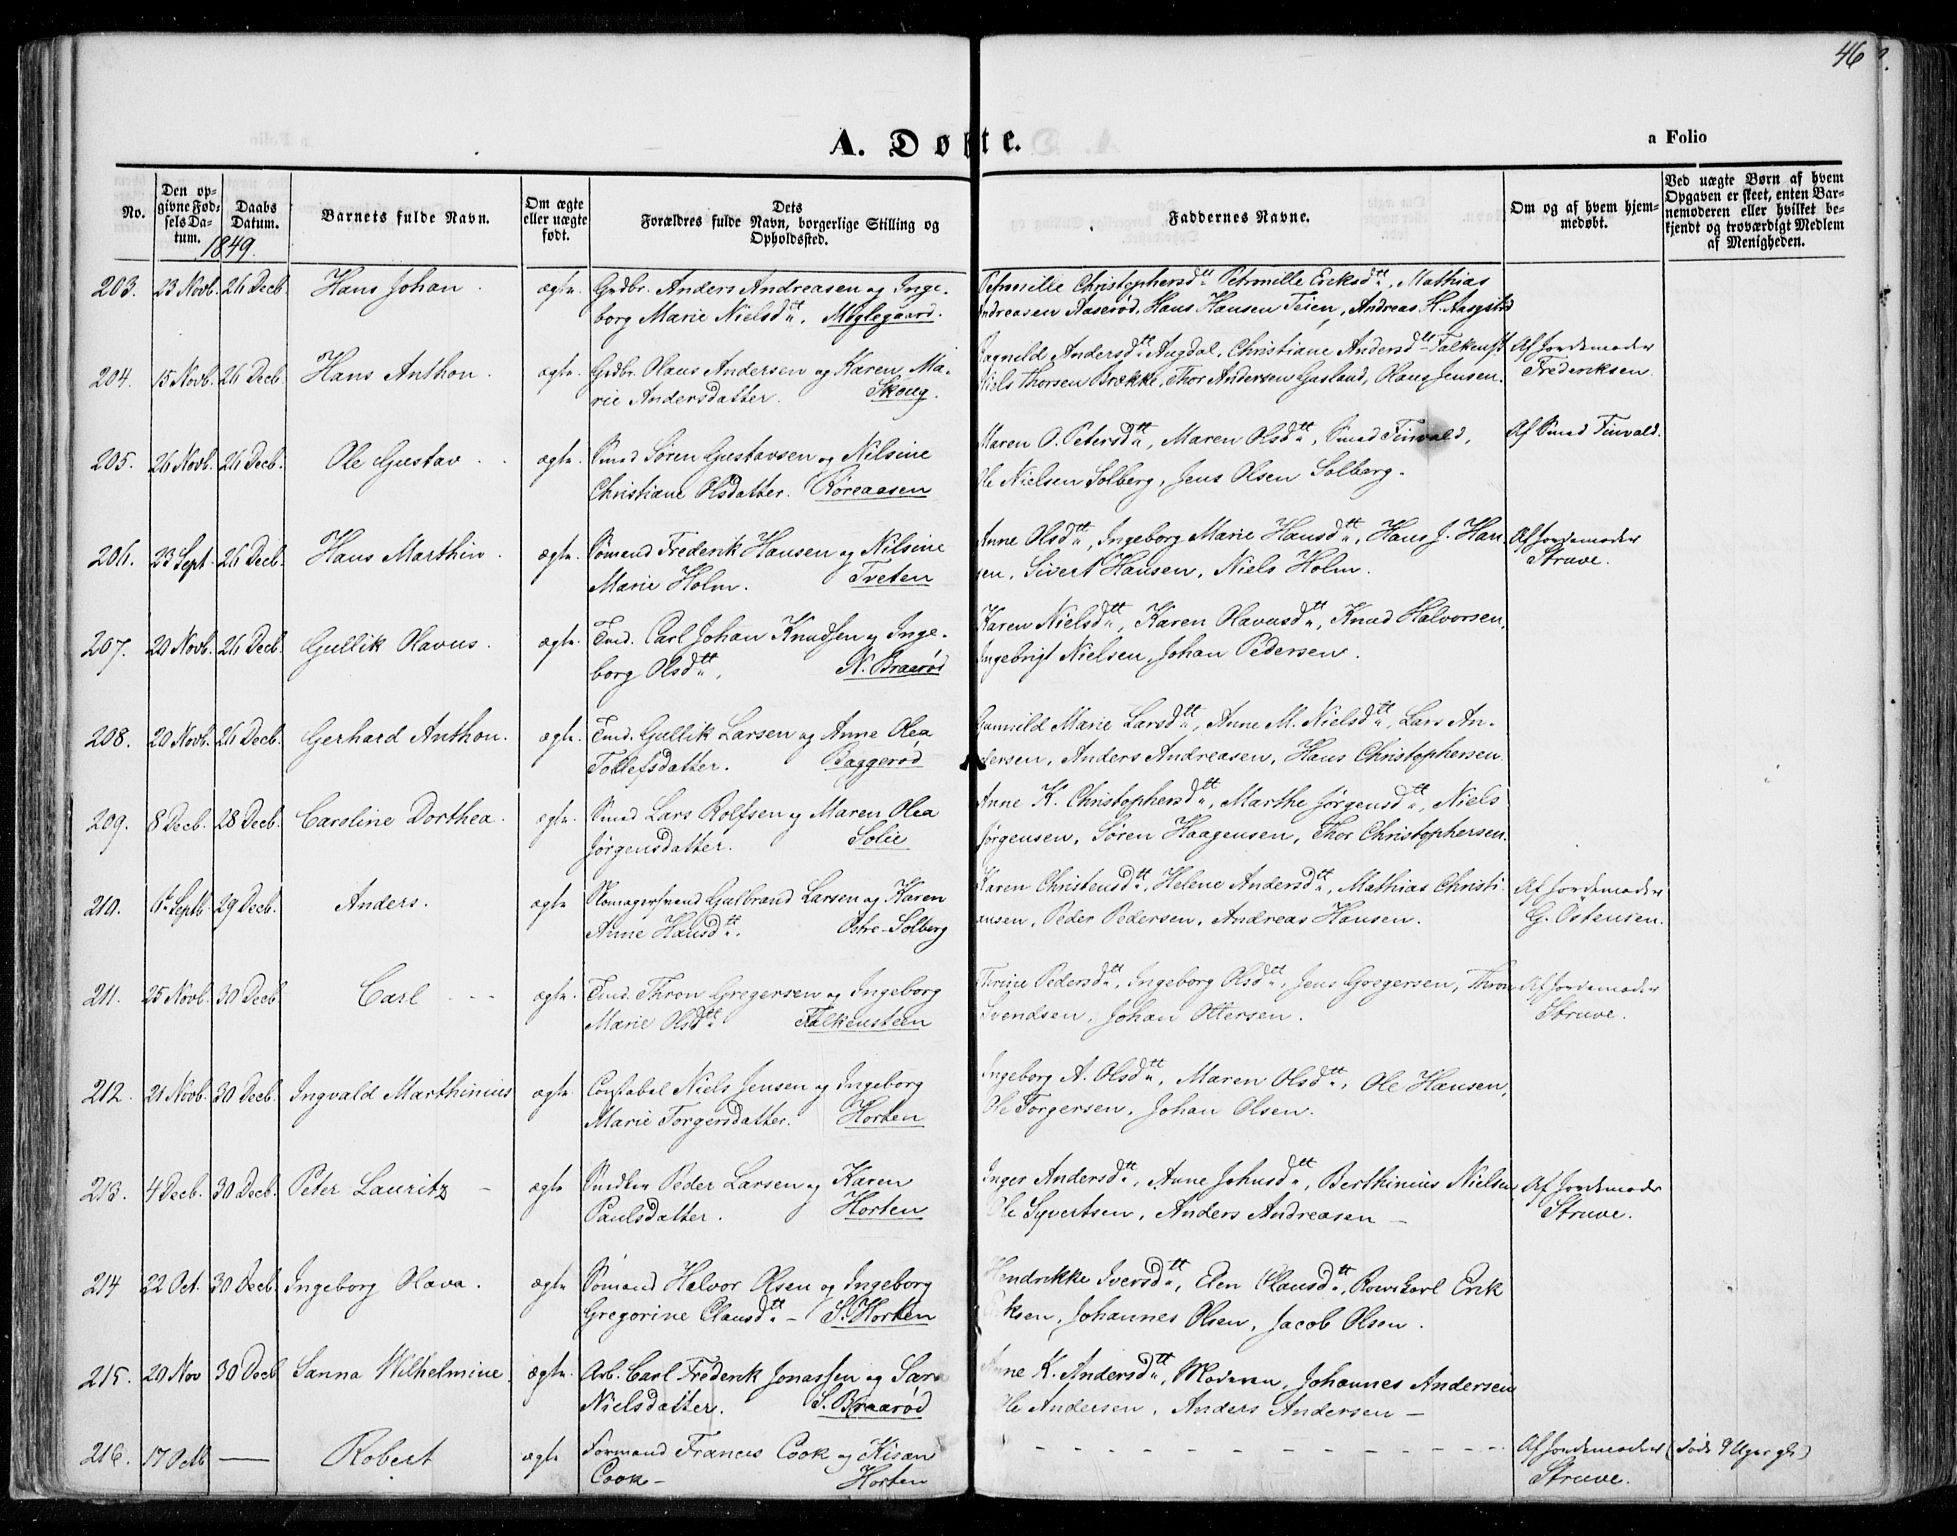 46
A. Døbte.
a Folio
No.
Den op-
givne Fød-
sels Da-
tum.
Daabs
Datum.
1849.
Barnets fulde Navn.
Om ægte
eller uægte
født.
Dets
Forældres fulde Navn, borgerlige Stilling og
Opholdssted.
Faddernes Navne.
Om og af hvem hjem-
medøbt.
Ved uægte Børn af hvem
Opgaven er skeet, enten Bar-
nemoderen eller hvilket be-
kjendt og troværdigt Medlem
af Menigheden.
203. 23 Novb. 26 Decb. Hans Johan. ægte. Grdbr. Anders Andreasen og Inge-
borg Marie Nielsdtt. Møglegaard.
Petronille Christophersdtt Petronille Eriksdtt, Mathias
Andreasen Aaserød, Hans Hansen Teien, Andreas H. Aasgstd
204. 15 Novb. 26 Decb. Hans Anthon. ægte. Grdbr. Olaus Andersen og Karen Ma-
rie Andersdatter. Skoug.
Ragnild Andersdtt Augdal, Christiane Andersdtt Falkenst
Niels Thorsen Brække, Thor Andersen Gasland, Olaus Jensen.
Af Jordemoder
Frederiksen.
205. 26 Novb. 26 Decb. Ole Gustav. ægte. Smed Søren Gustavsen og Nilsine
Christiane Olsdatter. Røreaasen
Maren O. Petersdtt, Maren Olsdtt, Smed Tinvald,
Ole Nielsen Solberg, Jens Olsen Solberg.
Af Smed Tinvald.
206. 23 Sept. 26 Decb. Hans Marthin. ægte. Sømand Frederik Hansen og Nilsine
Marie Holm. Tveten
Anne Olsdtt, Ingeborg Marie Hansdtt, Hans J. Han-
sen, Sivert Hansen, Niels Holm.
Af Jordemoder
Struve.
207. 20 Novb. 26 Decb. Gullik Olavus. ægte. Tmd. Carl Johan Knudsen og Inge-
borg Olsdtt. N. Braarød
Karen Nielsdtt, Karen Olavusdtt, Knud Halvorsen,
Ingebrigt Nielsen, Johan Pedersen.
208. 20 Novb. 26 Decb. Gerhard Anthon. ægte. Tmd. Gullik Larsen og Anne Olea
Tollefsdatter. Baggerød
Gunnild Marie Larsdtt, Anne M. Nielsdtt, Lars An-
dersen, Anders Andreasen, Hans Christophersen.
209. 8 Decb. 28 Decb. Caroline Dorthea. ægte. Smed Lars Rolfsen og Maren Olea
Jørgensdatter. Solie
Anne K. Christophersdtt, Marthe Jørgensdtt, Niels
Jørgensen, Søren Haagensen, Thor Christophersen.
210. Septb 29 Decb. Anders. ægte Skomagersvend Gulbrand Larsen og Karen
Anne Hansdtt. Østre-Solberg
Karen Christensdtt, Helene Andersdtt, Mathias Christi-
ansen, Peder Pedersen, Andreas Hansen.
Af Jordemoder
G. Østensen.
211. 25 Novb. 30 Decb Carl ægte. Tmd. Thron Gregersen og Ingeborg
Marie Olsdtt Falkensteen
Thrine Pedersdtt, Ingeborg Olsdtt, Jens Gregersen, Thron
Svendsen, Johan Ottersen.
Af Jordemoder
Struve.
212. 21 Novb. 30 Decb. Ingvald Marthinius ægte. Constabel Niels Jensen og Ingeborg
Marie Torgersdatter. Horten
Ingeborg A. Olsdtt, Maren Olsdtt, Ole Hansen,
Ole Torgersen, Johan Olsen.
213. 4 Decb. 30 Decb. Peter Lauritz – ægte Peder Larsen og Karen
Paulsdatter. Horten
Inger Andersdtt, Anne Johnsdtt, Berthinius Nielsen
Ole Syvertsen, Anders Andreasen –
Af Jordemoder
Struve.
214 22 Oct. 30 Decb. Ingeborg Olava. ægte Sømand Halvor Olsen og Ingeborg
Gregorine Clausdtt – S. Horten
Hendrikke Iversdtt, Elen Olausdtt, Erik
Eriksen, Johannes Olsen, Jacob Olsen.
215. 20 Nov 30 Decb Sanna Wilhelmine. ægte. Arb. Carl Frederik Jonassen og Sara
Nielsdatter. S. Braarød
Anne K. Andersdtt, Moderen, Johannes Andersen
Ole Andersen, Anders Andersen –
216. 17 Octb — Robert ægte Formand Francis Cook og Kisan
Cook – Horten
– – – – – – – – – – – –
Af Jordemoder
Struve.
(døde 9 Uger gl.)